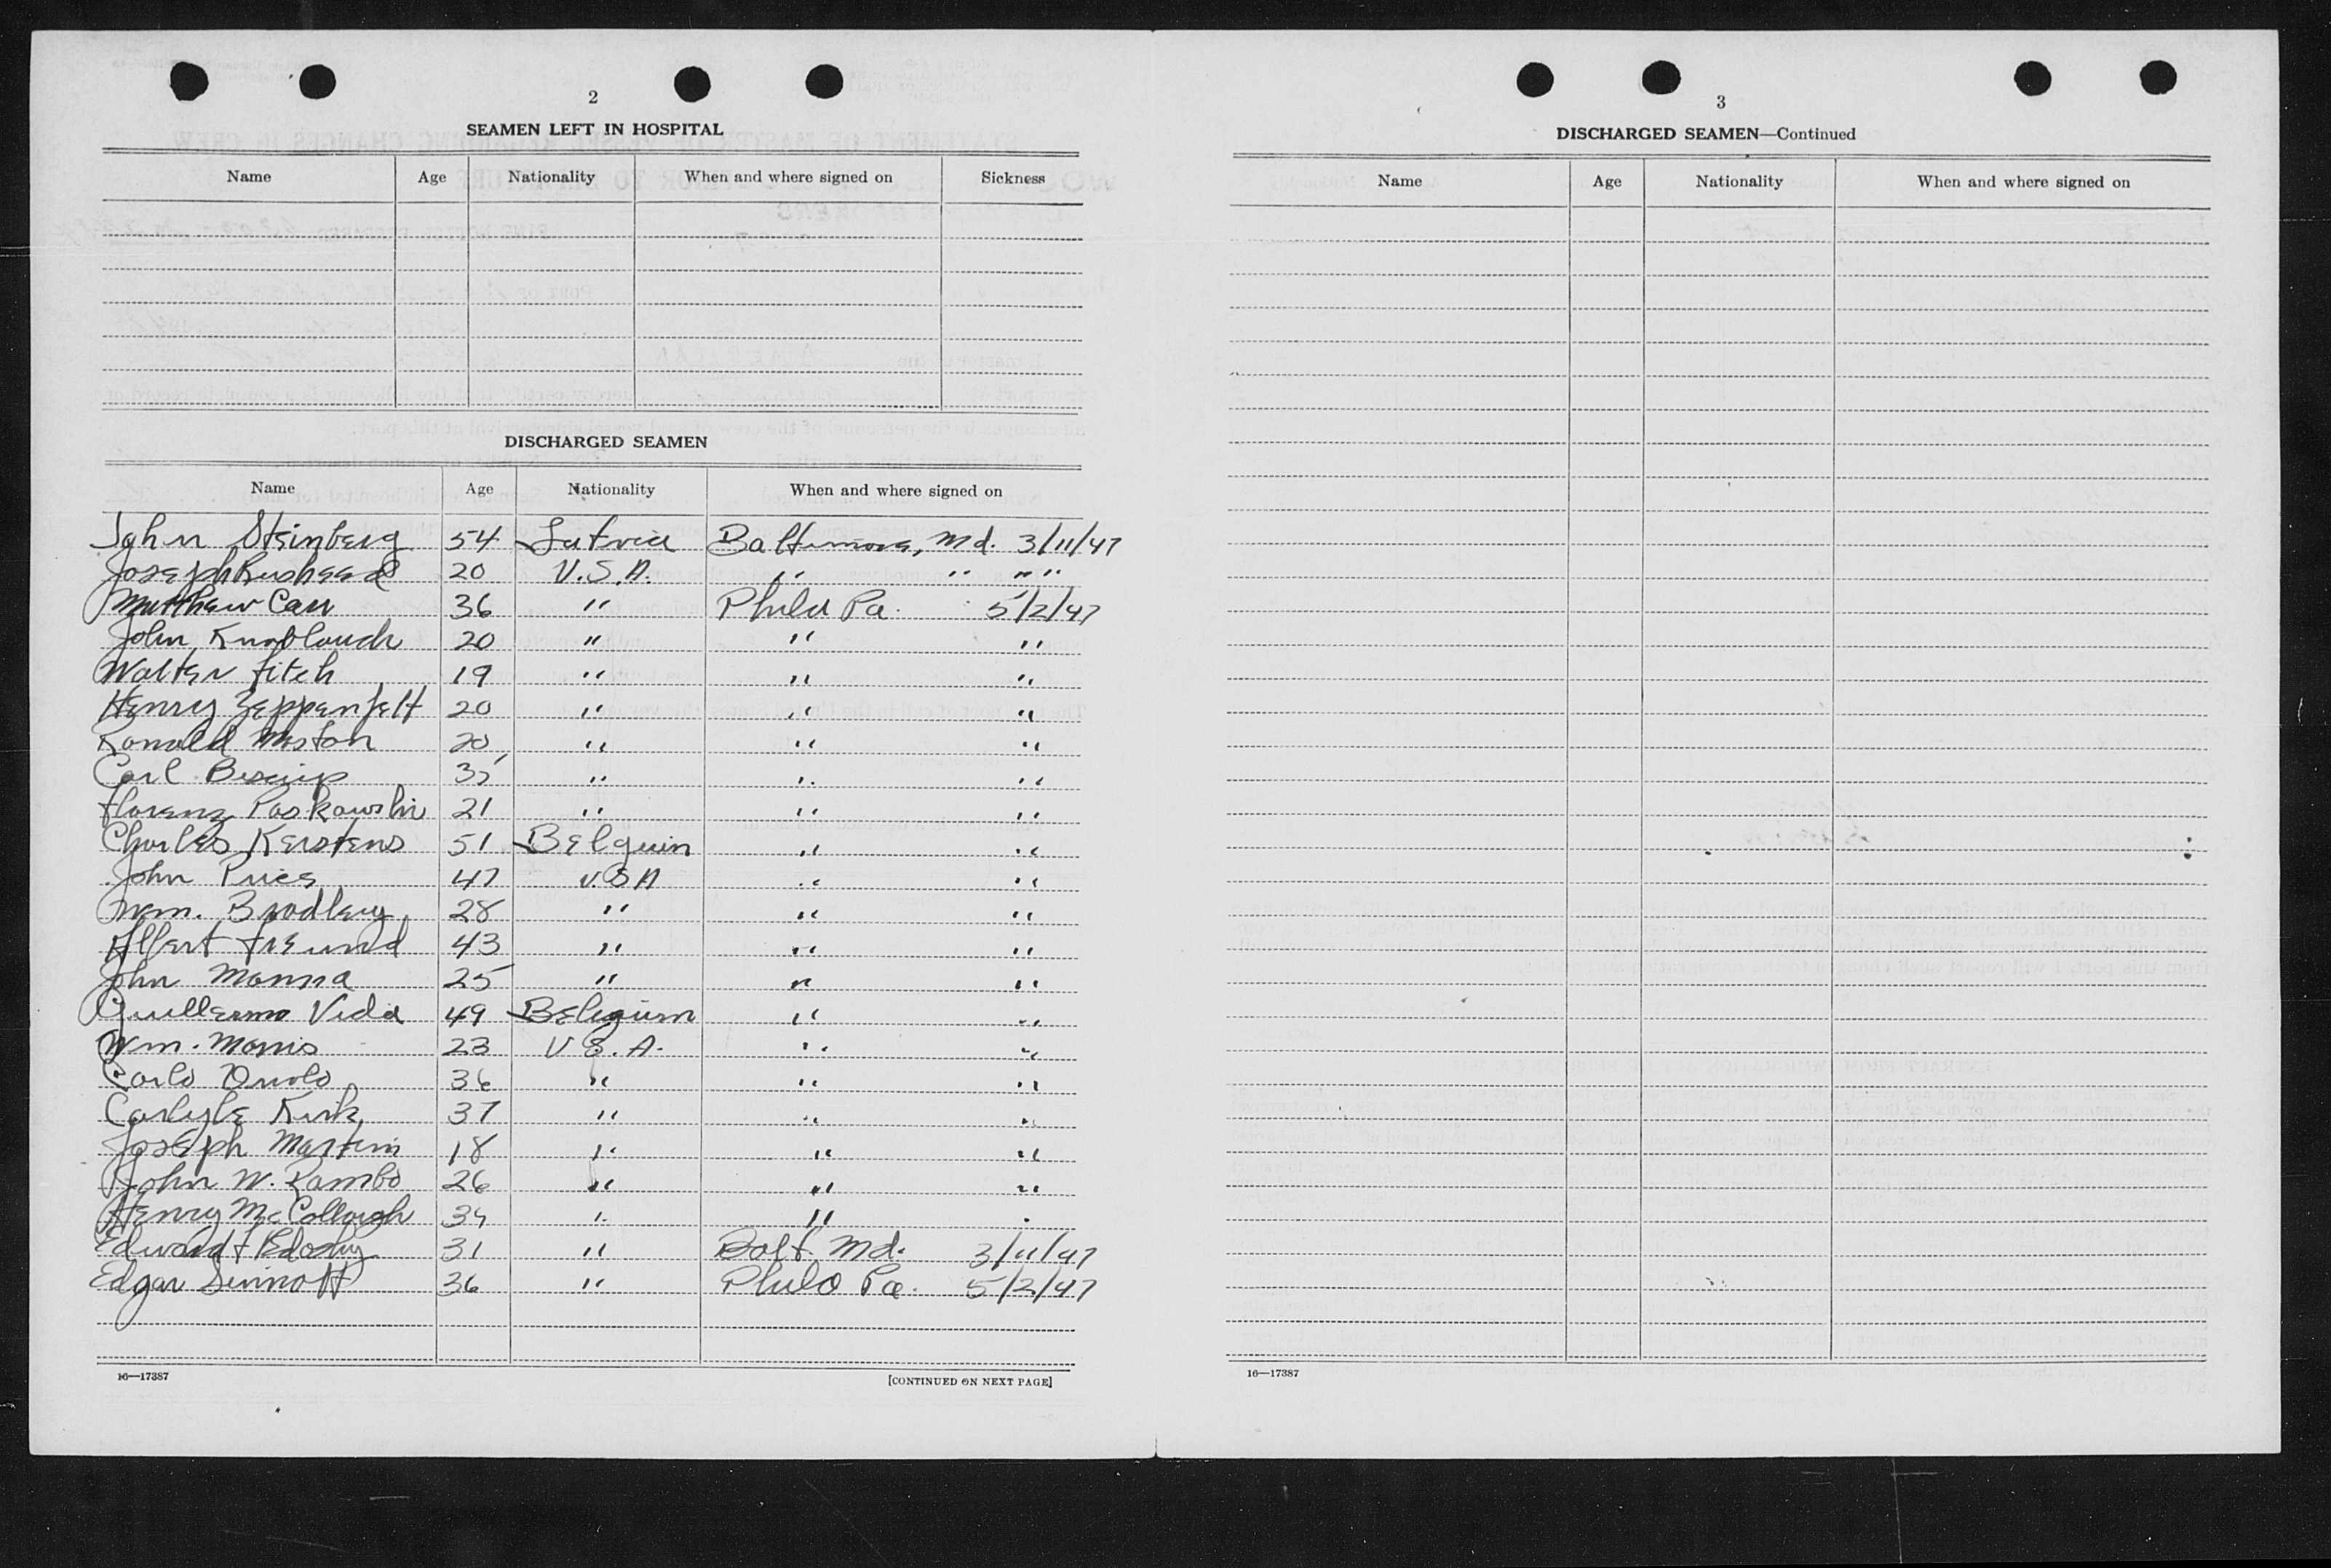 2
SEAMEN LEFT IN HOSPITAL
Name Age Nationality When and where signed on Sickness
DISCHARGED SEAMEN
Name Age Nationality When and where signed on
John Steinberg 54 Latvia Baltimore, Md. 3/11/47
Joseph 20 U.S.A. " " " "
Matthew Carr 36 " Phila Pa. 5/2/47
John Knoblauch 20 " " "
Walter Fitch 19 " " "
Henry Zeppenfelt 20 " " "
Ronald Moston 20 " " "
Carl 35 " " "
Florenz Paskowski 21 " " "
Charles Kerstens 51 Belguim " "
John Pries 47 U.S.A " "
Wm. Bradley 28 " " "
Albert Freund 43 " " "
John Manna 25 " " "
Guillermo Vidal 49 Belgium " "
Wm. Morris 23 U.S.A. " "
Carlo 36 " " "
Carlyle Kirk 37 " " "
Joseph Martin 18 " " "
John W. Rambo 26 " " "
Henry McCollough 34 " " "
Edward F 31 " Balt Md. 3/11/47
Edgar Sinnott 36 " Phila Pa. 5/2/47
16—17387
[CONTINUED ON NEXT PAGE]
3
DISCHARGED SEAMEN—Continued
Name Age Nationality When and where signed on
16—17387